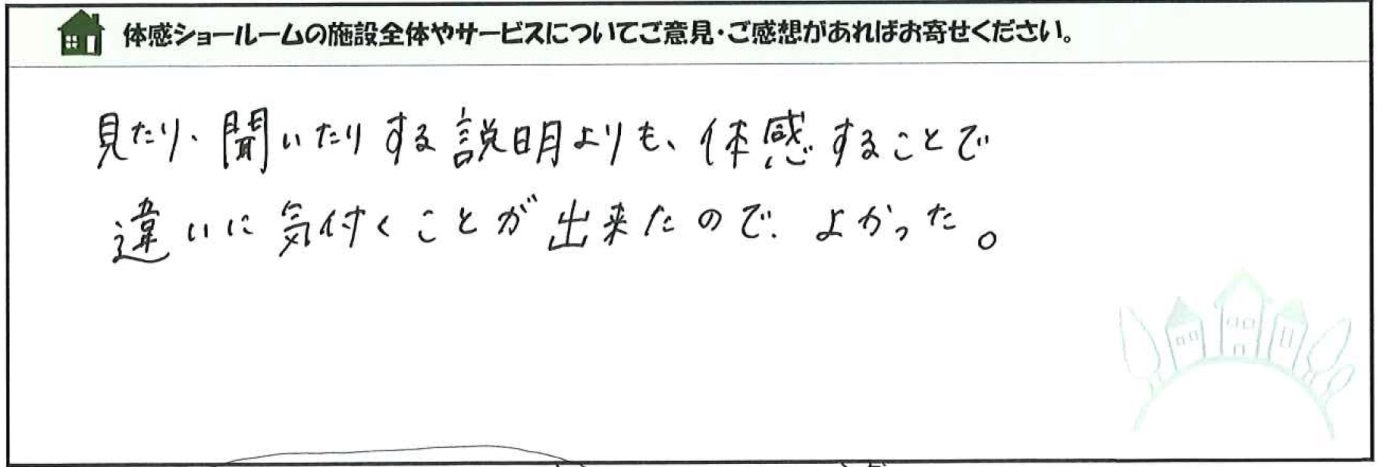 体感ショールームの施設全体やサービスについてご意見・ご感想があればお寄せください。
見たり、聞いたりする説明よりも、体感することで
違いに気付くことが出来たので、よかった。